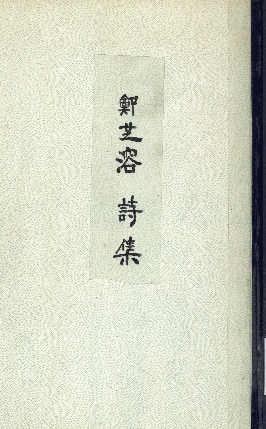 鄭芝溶 詩集